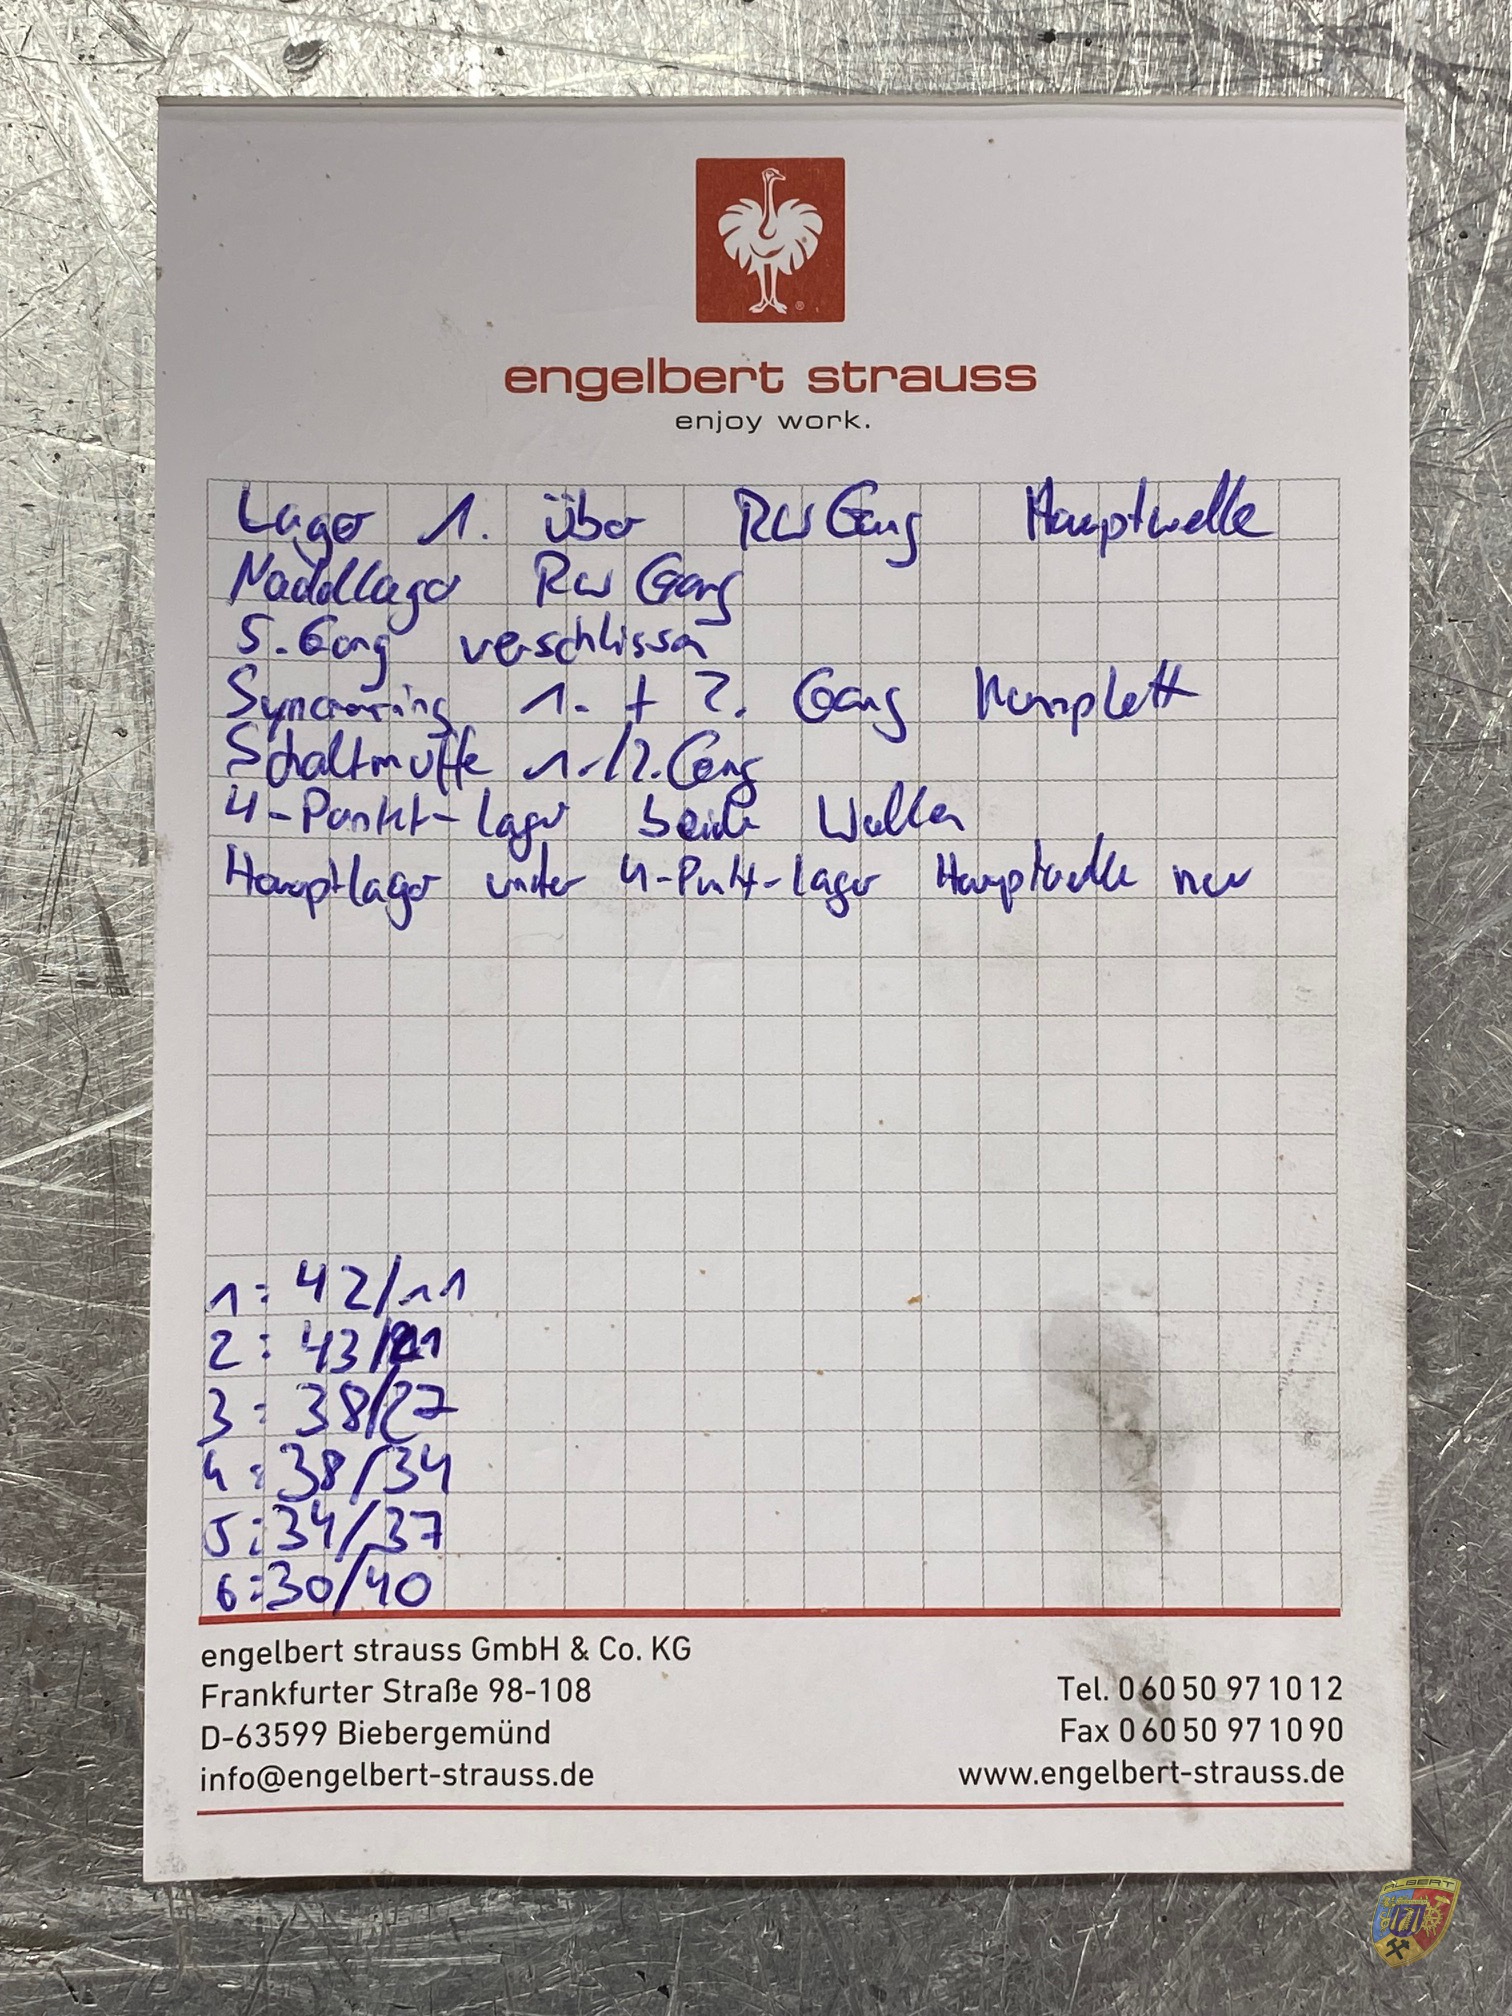 engelbert strauss
enjoy work.
Lager 1. über RW Gang Hauptwelle
Nadellager RW Gang
5. Gang verschlissen
Syncroring 1. + 2. Gang Komplett
Schaltmuffe 1./2. Gang
4-Punkt-Lager beide Wellen
Hauptlager unter 4-Punkt-Lager Hauptwelle neu
1: 42/11
2: 43/21
3: 38/27
4: 38/34
5: 34/37
6: 30/40
engelbert strauss GmbH & Co. KG
Frankfurter Straße 98-108
D-63599 Biebergemünd
info@engelbert-strauss.de
Tel. 0 60 50 97 10 12
Fax 0 60 50 97 10 90
www.engelbert-strauss.de
ALBERT